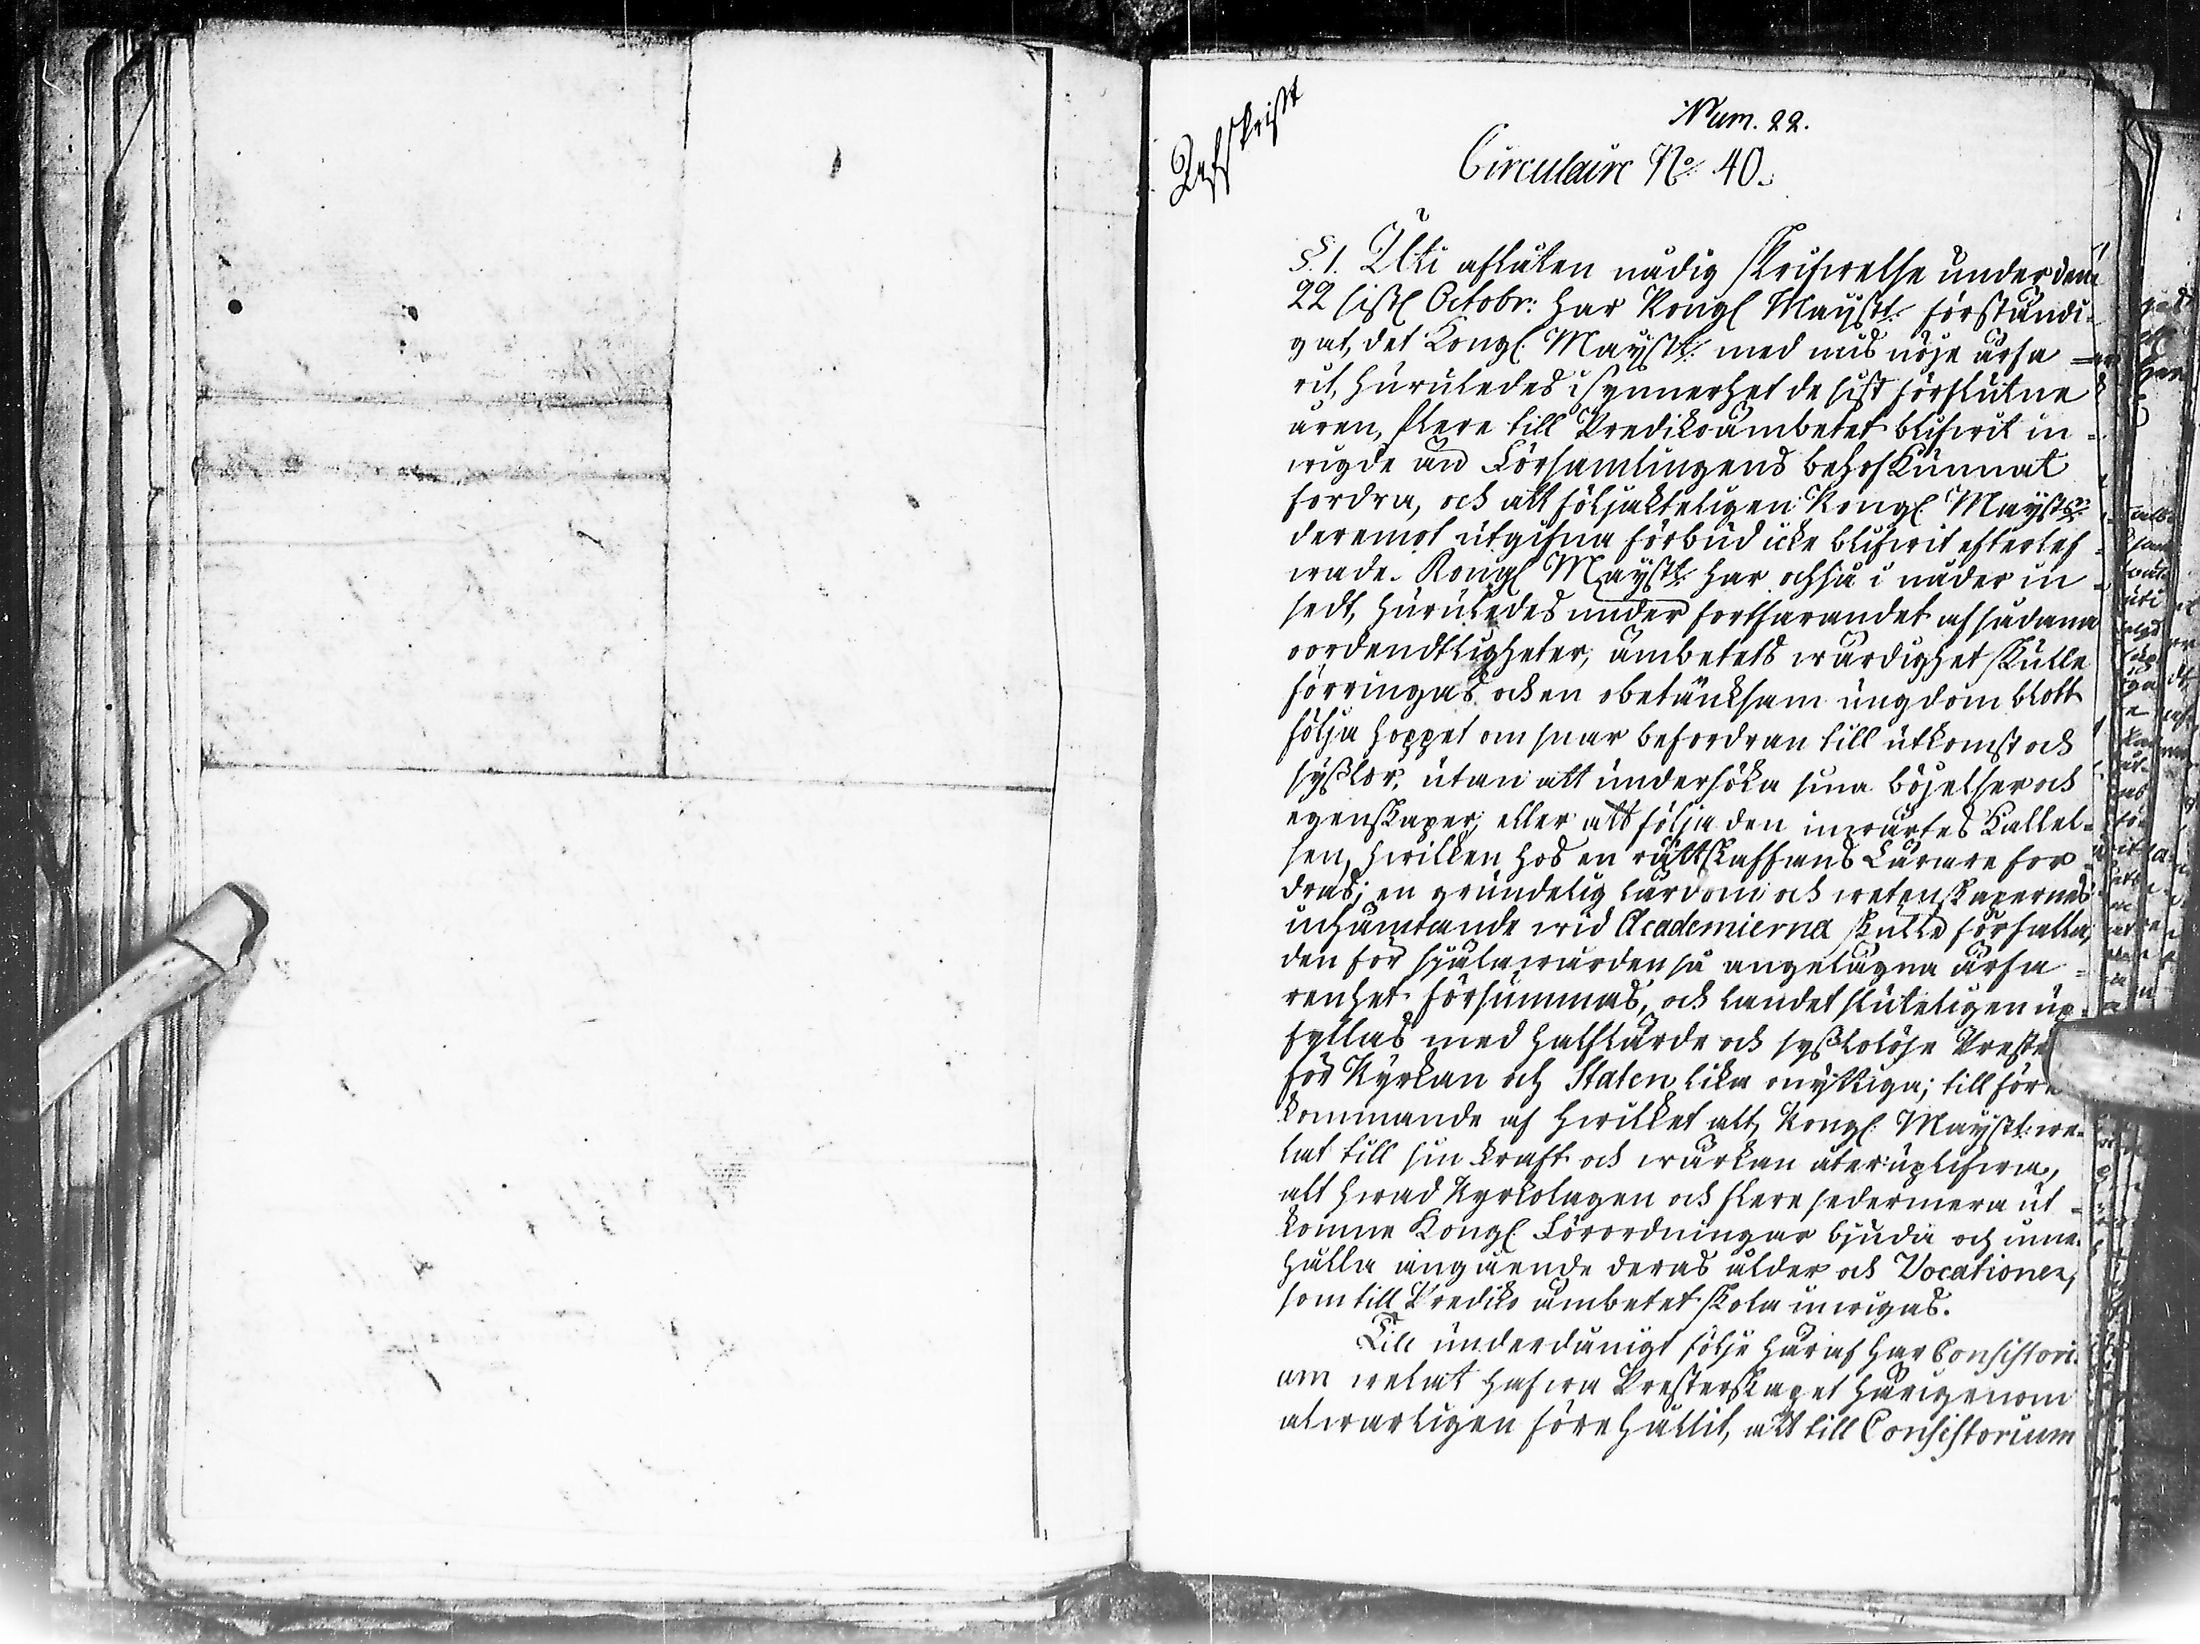 Afskrift
Num. 22.
Circulaire No. 40.
§. 1. Uti aflåten nådig Skrifwelse under den
22 sistl. Octobr: har Kongl Maijst:t förständi-
gat, det Kongl. Maijst:t med mis nöje ärfa-
rit, huruledes i synnerhet de sist förflutne
åren, flere till Predikoämbetet blifwit in-
wigde än Församlingens behof kunnat
fordra, och att följackteligen Kongl Maijst:ts
deremot utgifna förbud icke blifwit efterlef-
wade. Kongl Maijst:t har ochså i nåder in-
sedt, huruledes under fortfarandet af sådana
oordendtligheter, ämbetets wärdighet skulle
förringas och en obetänksam ungdom blott
följa hoppet om snar befordran till utkomst och
sysslor, utan att undersöka sina böjelser och
egenskaper, eller att följa den inwärtes Kallel-
sen, hwilken hos en rättskaffens Lärare for-
dras; en grundelig lärdom och wetenskapernes
inhämtande wid Academierna skulle förfalla,
den för själawården så angelägna ärfa-
renhet försummas, och landet sluteligen up-
fyllas med halflärde och syssolöse Preste
för Kyrkan och Staten lika onyttiga; till före
kommande af hwilket alt, Kongl. Maijst:t we-
lat till sin kraft och wärkan återuplifwa,
alt hwad Kyrkolagen och flere sedermera ut-
komne Kongl. Förordningar bjuda och inne-
hålla angående deras ålder och Vocationer,
som till Predikoämbetet skola inwigas.
Till underdånigt följe häraf har Consistori-
um welat hafwa Presterskapet härigenom
alwarligen förehållit, att till Consistorium